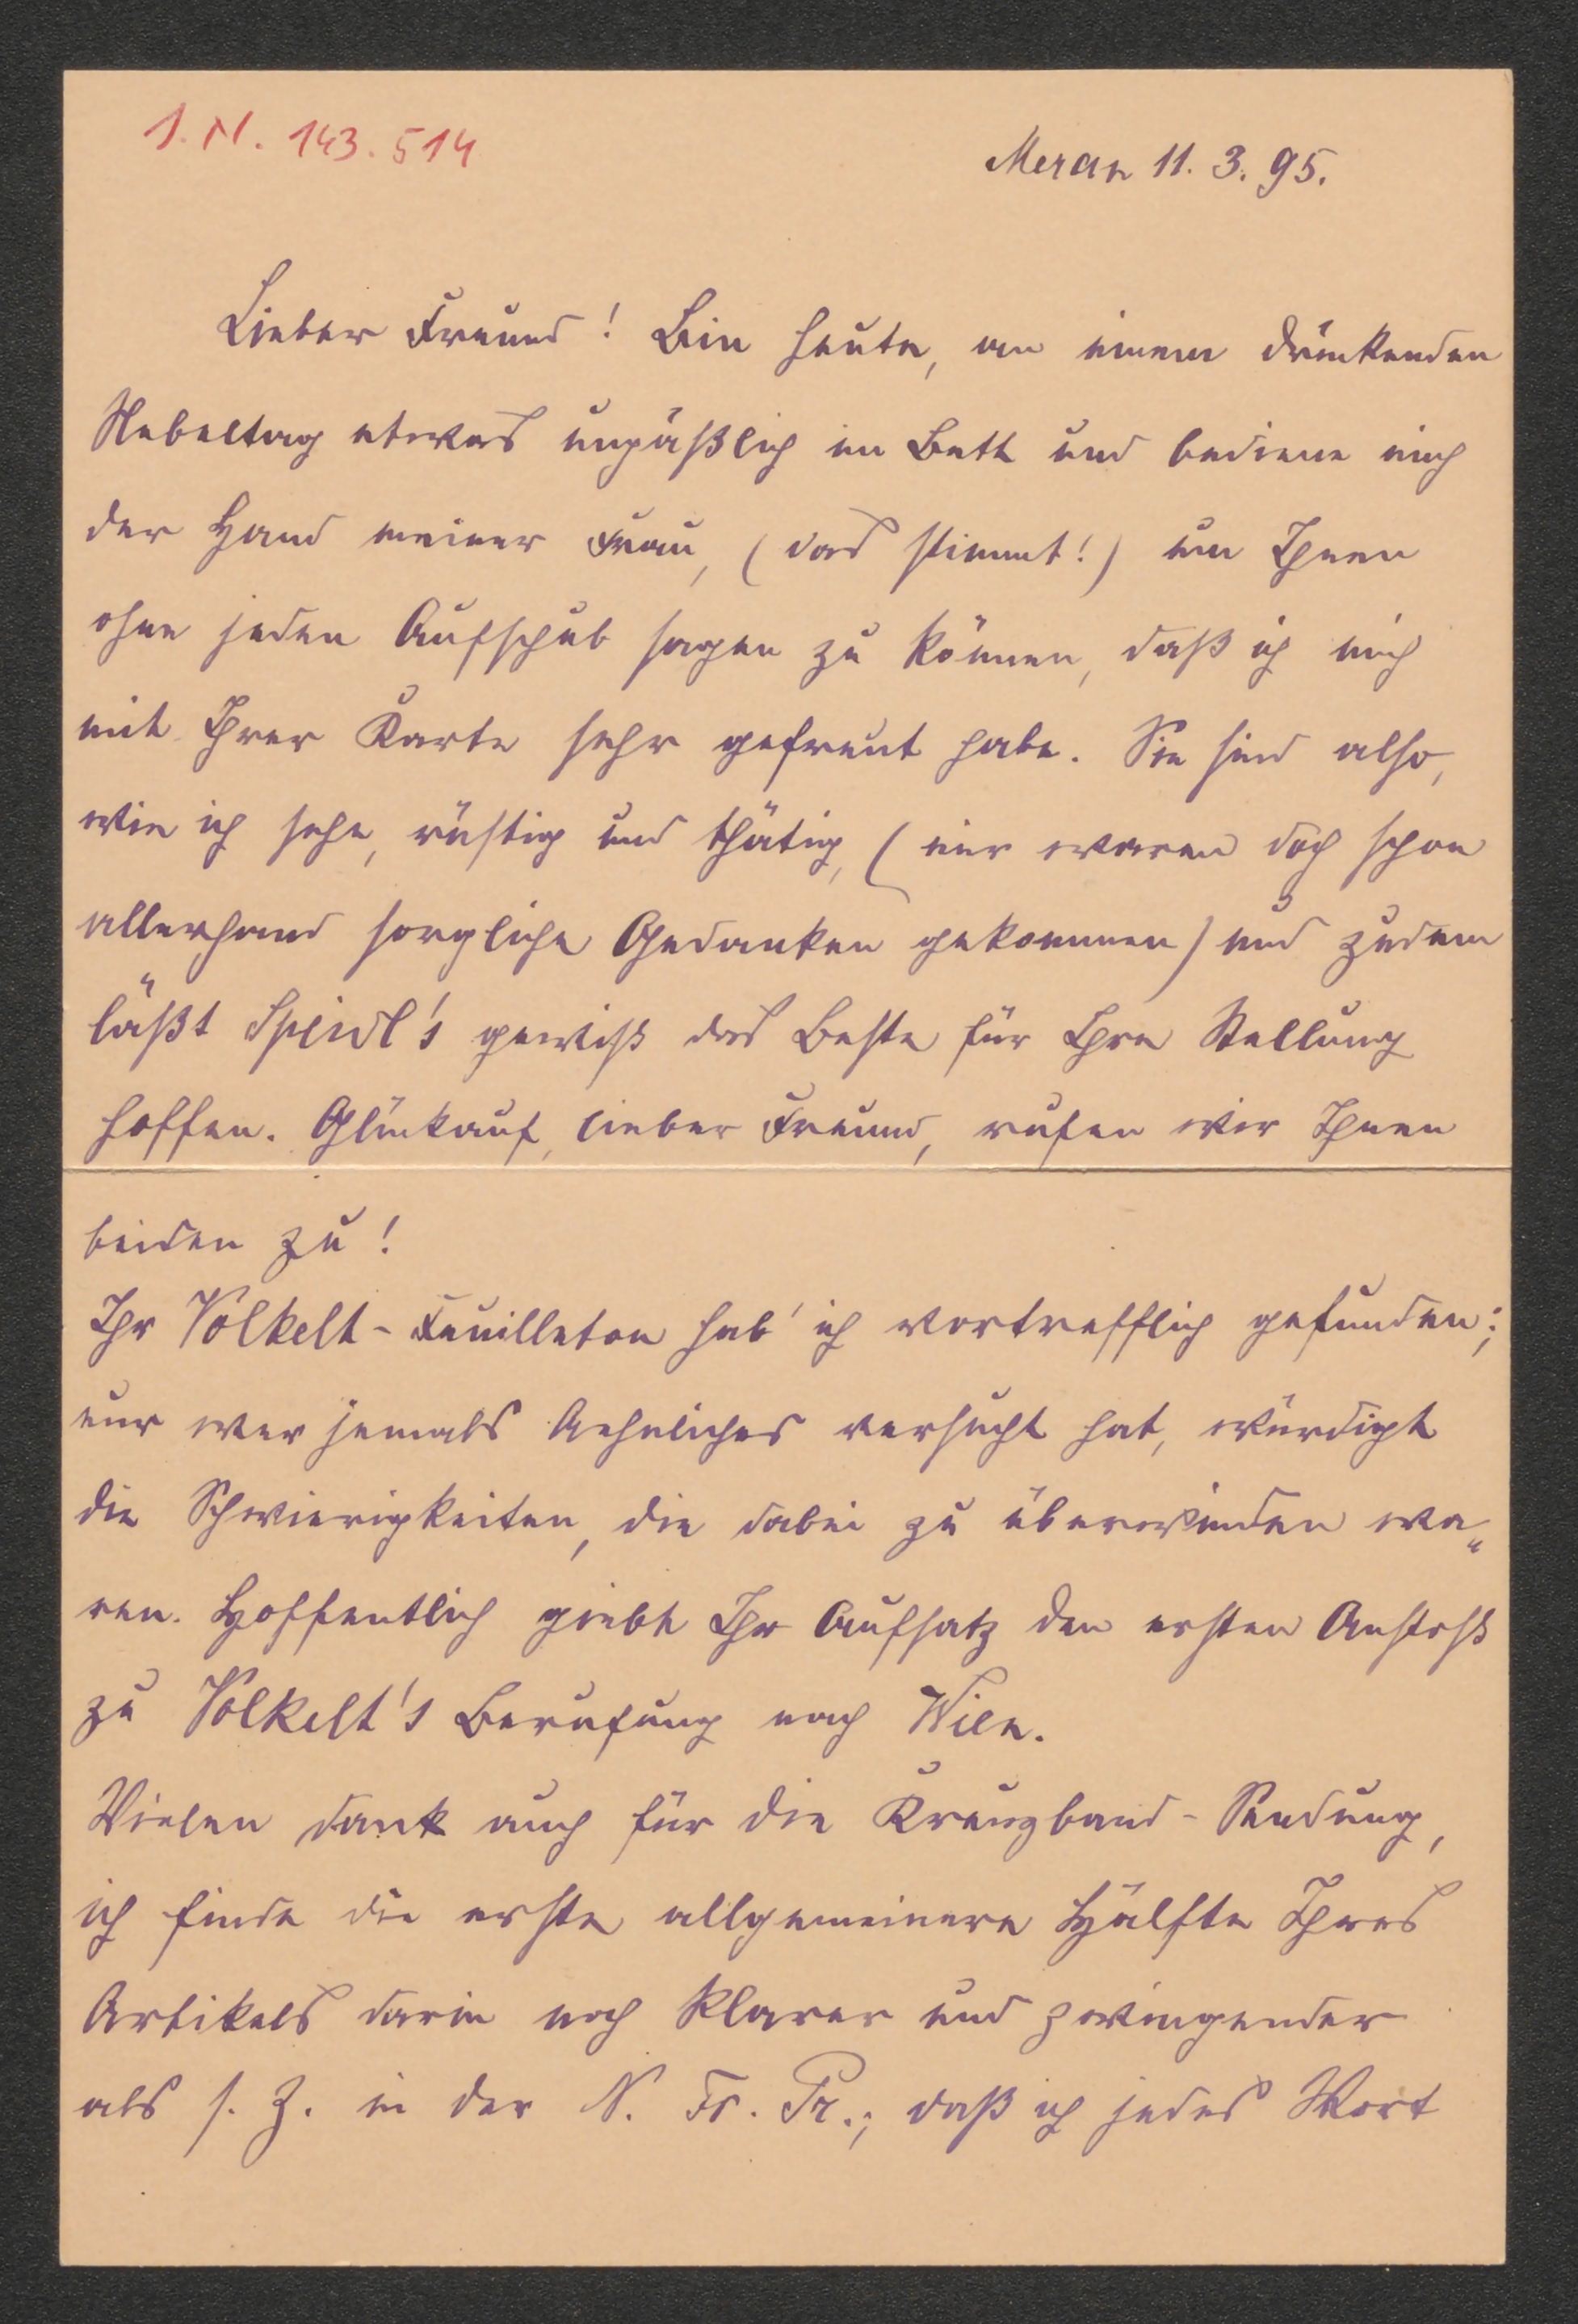 I. N. 143.514
Meran 11. 3. 95.
Lieber Freund! Bin heute, an einem drückenden
Nebeltag etwas unpäßlich im Bett und bediene mich
der Hand meiner Frau, (das stimmt!) um Ihnen
ohne jeden Aufschub sagen zu können, daß ich mich
mit Ihrer Karte sehr gefreut habe. Sie sind also,
wie ich sehe, rüstig und thätig, (mir waren doch schon
allerhand sorgliche Gedanken gekommen) und zudem
läßt Speidl's gewiß das Beste für Ihre Stellung
hoffen. Glückauf, lieber Freund, rufen wir Ihnen
beiden zu!
Ihr Volkelt-Feuilleton hab' ich vortrefflich gefunden;
nur wer jemals Aehnliches versucht hat, würdigt
die Schwierigkeiten, die dabei zu überwinden wa„
ren. Hoffentlich giebt Ihr Aufsatz den ersten Anstoß
zu Volkelt's Berufung nach Wien.
Vielen Dank auch für die Kreuzband-Sendung,
ich finde die erste allgemeinere Hälfte Ihres
Artikels darin noch klarer und zwingender
als s. Z. in der N. Fr. Pr.; daß ich jedes Wort